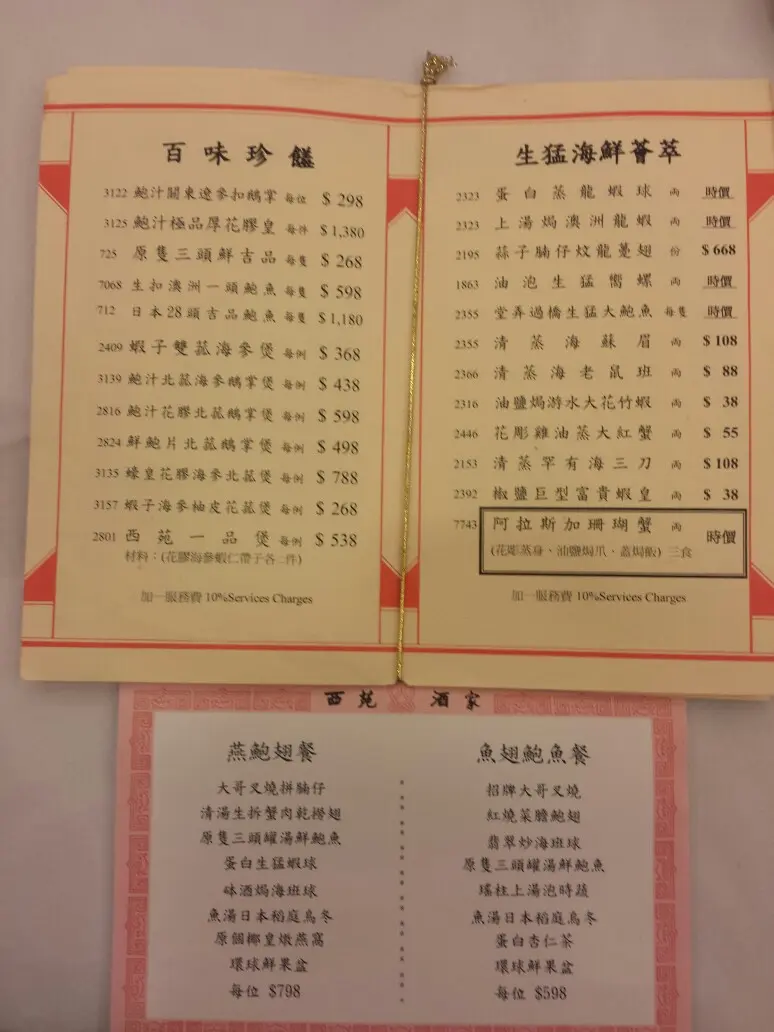 百味珍饈
3122 鮑汁關東遼參扣鵝掌 每位 $ 298
3125 鮑汁極品厚花膠皇 每件 $ 1,380
725 原隻三頭鮮吉品 每隻 $ 268
7068 生扣澳洲一頭鮑魚 每隻 $ 598
712 日本28頭吉品鮑魚 每隻 $ 1,180
2409 蝦子雙菰海參煲 每例 $ 368
3139 鮑汁北菰海參鵝掌煲 每例 $ 438
2816 鮑汁花膠北菰鵝掌煲 每例 $ 598
2824 鮮鮑片北菰鵝掌煲 每例 $ 498
3135 蠔皇花膠海參北菰煲 每例 $ 788
3157 蝦子海參柚皮花菰煲 每例 $ 268
2801 西苑一品煲 每例 $ 538
材料：(花膠海參蝦仁帶子各二件)
加一服務費 10%Services Charges
生猛海鮮薈萃
2323 蛋白蒸龍蝦球 両 時價
2323 上湯焗澳洲龍蝦 両 時價
2195 蒜子腩仔炆龍躉翅 份 $ 668
1863 油泡生猛嚮螺 両 時價
2355 堂弄過橋生猛大鮑魚 每隻 時價
2355 清蒸海蘇眉 両 $ 108
2366 清蒸海老鼠班 両 $ 88
2316 油鹽焗游水大花竹蝦 両 $ 38
2446 花彫雞油蒸大紅蟹 両 $ 55
2153 清蒸罕有海三刀 両 $ 108
2392 椒鹽巨型富貴蝦皇 両 $ 38
7743 阿拉斯加珊瑚蟹 両 時價
(花彫蒸身、油鹽焗爪、蓋焗飯) 三食
加一服務費 10%Services Charges
西苑酒家
燕鮑翅餐
大哥叉燒拼腩仔
清湯生拆蟹肉乾撈翅
原隻三頭罐湯鮮鮑魚
蛋白生猛蝦球
砵酒焗海班球
魚湯日本稻庭烏冬
原個椰皇燉燕窩
環球鮮果盆
每位 $798
魚翅鮑魚餐
招牌大哥叉燒
紅燒菜膽鮑翅
翡翠炒海班球
原隻三頭罐湯鮮鮑魚
瑤柱上湯泡時蔬
魚湯日本稻庭烏冬
蛋白杏仁茶
環球鮮果盆
每位 $598